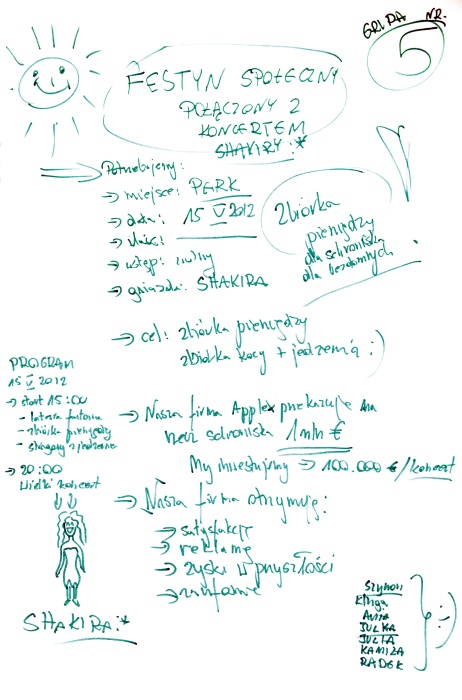 GRUPA NR.
5
FESTYN SPOŁECZNY
POŁĄCZONY Z
KONCERTEM
SHAKIRY :*
Potrzebujemy:
→ miejsce: PARK
→ data: 15 V 2012
→ wstęp: wolny
→ gwiazda: SHAKIRA
Zbiórka
pieniędzy
dla schroniska
dla bezdomnych
→ cel: zbiórka pieniędzy
zbiórka kocy + jedzenia :)
→ Nasza firma Applex przekazuje na
schroniska 1 mln €
My inwestujemy → 100.000 €/koncert
→ Nasza firma otrzymuje:
→ satysfakcję
→ reklamę
→ zyski w przyszłości
→ zaufanie
PROGRAM
15 V 2012
→ start 15:00
- loteria fantowa
- zbiórka pieniędzy
- stragany z jedzeniem
→ 20:00
Wielki koncert
SHAKIRA :*
Szymon
Kinga
Ania
JULKA
JULIA
KAMILA
RADEK
:-)